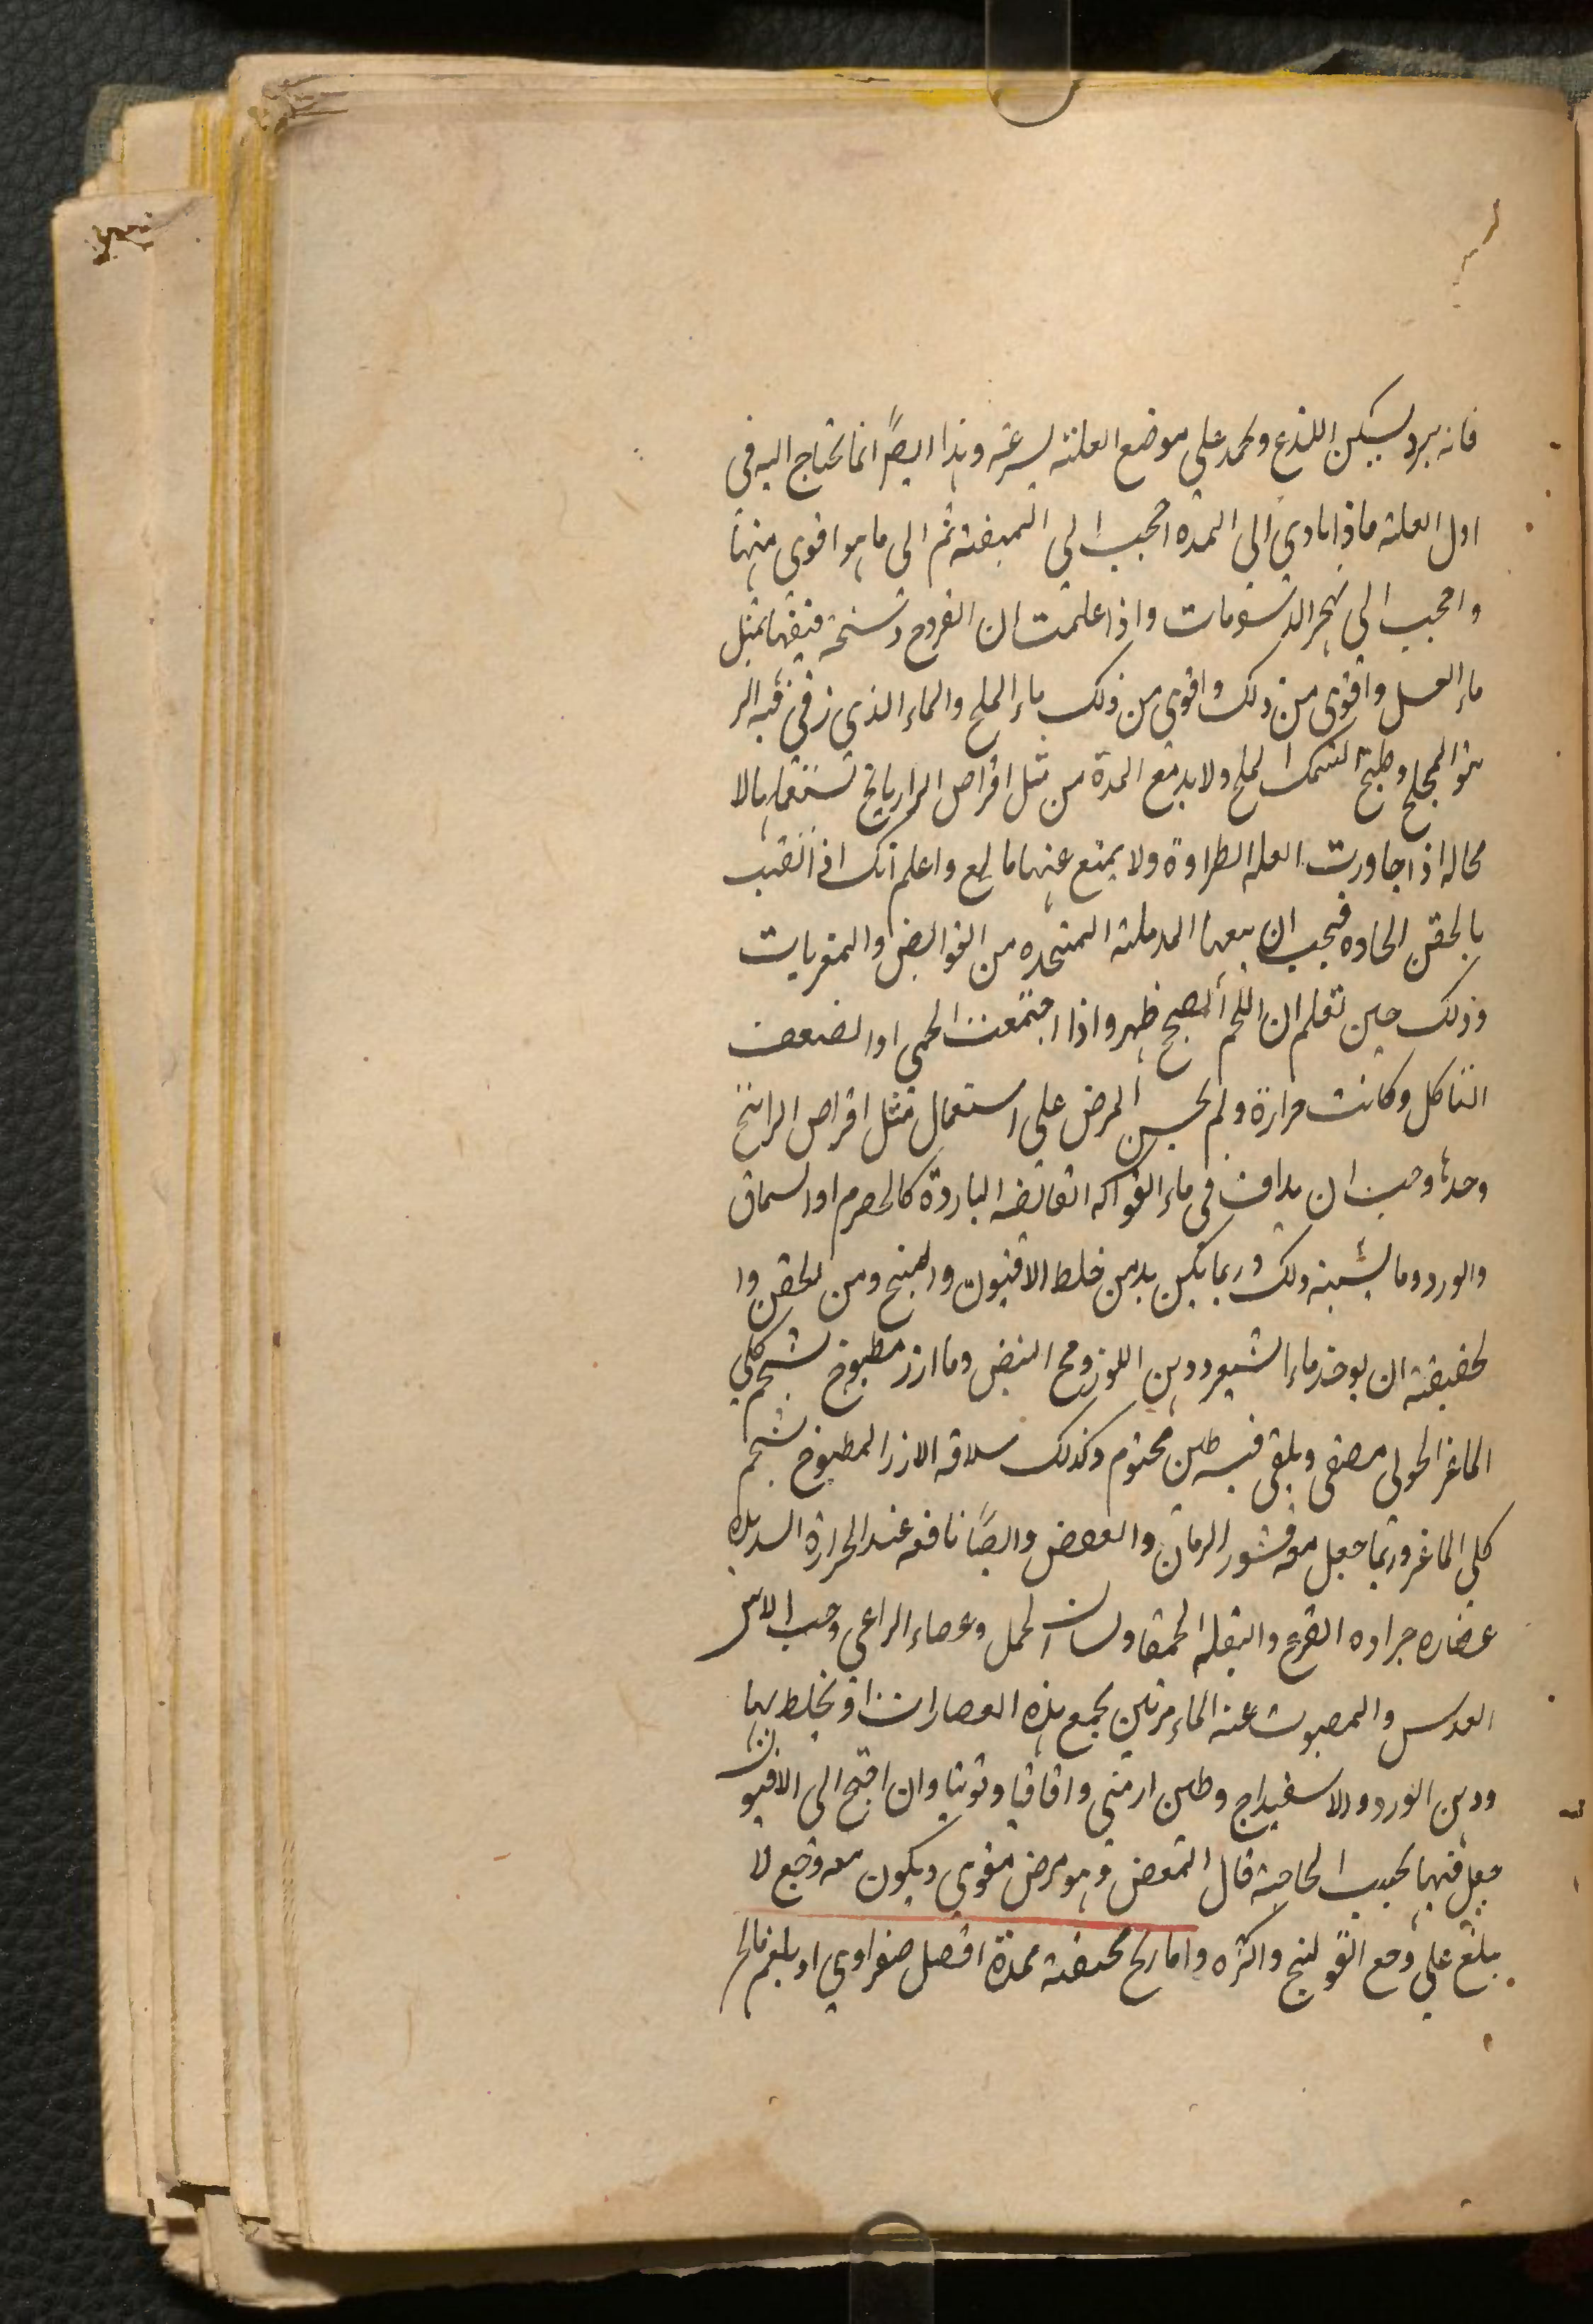 فانه يبرد يسكن اللذع ويحمد على موضع العلته لسرعته وهذا ايضاً انما يحتاج اليه فى
اول العلته ماذا مادى الى المدة احجب الى المبضته ثم الى ما هو اقوى منها
واحجب الى هجر الدسومات واذا علمت ان القروح وسخة فنقها بمثل
ماء العسل واقوى من ذلك واقوى من ذلك ماء الملح والماء الذي زقى فيه الز
يتو المجلح وطبيخ السمك المملح ولا بد مع المدة من مثل اقراص الزاريانج تستعملها لا
محاله اذا جاورت العله الطراوة ولا يمنع عنها مانع واعلم انك اذ انقيت
بالحقن الحاده فيجب ان يتبعها المدملته المتخده من القوابض والمغريات
وذلك حين تعلم ان اللحم الصحيح ظهر واذا اجتمعت الحمى او الضعف
التاكل وكانت مرارة ولم يحسن المرض على استعمال مثل اقراص الرانخ
وحده وجب ان يداف فى ماء الفواكه القابضه الباردة كالحصرم او السماق
والورد وما يشبه ذلك وربما يكن بد من خلط الافيون والبنج ومن الحقن وا
لخفيفته ان يوخذ ماء الشعير ودهن اللوز ومح البيض وما ارز مطبوخ بشحم كلى
الماعز الحولى مصفى ويلقى فيه طين مختوم وكذلك سلاقه الارز المطبوخ بشحم
كلى الماعز وربما جعل معه قشور الرمان والعفص وايضاً نافعه عند الحرارة الشديده
عصاره جراده القرع والبقله الحمقا ولسان الحمل وعصاء الراعى وحب الاس
العدس والمصبوب عنه الماء مرتين يجمع هذه العصارات او يخلط بها
ودهن الورد والاسفيداج وطين ارمنى واقاقيا وتوتيا وان احتج الى الافيون
جعل فيها بحسب الحاجته قال المغص وهو مرض معوى ويكون معه وجع لا
يبلغ على وجع القولنج واكثره واما ريح محتقنه ممدة افضل صفراوي او بلغم مالح